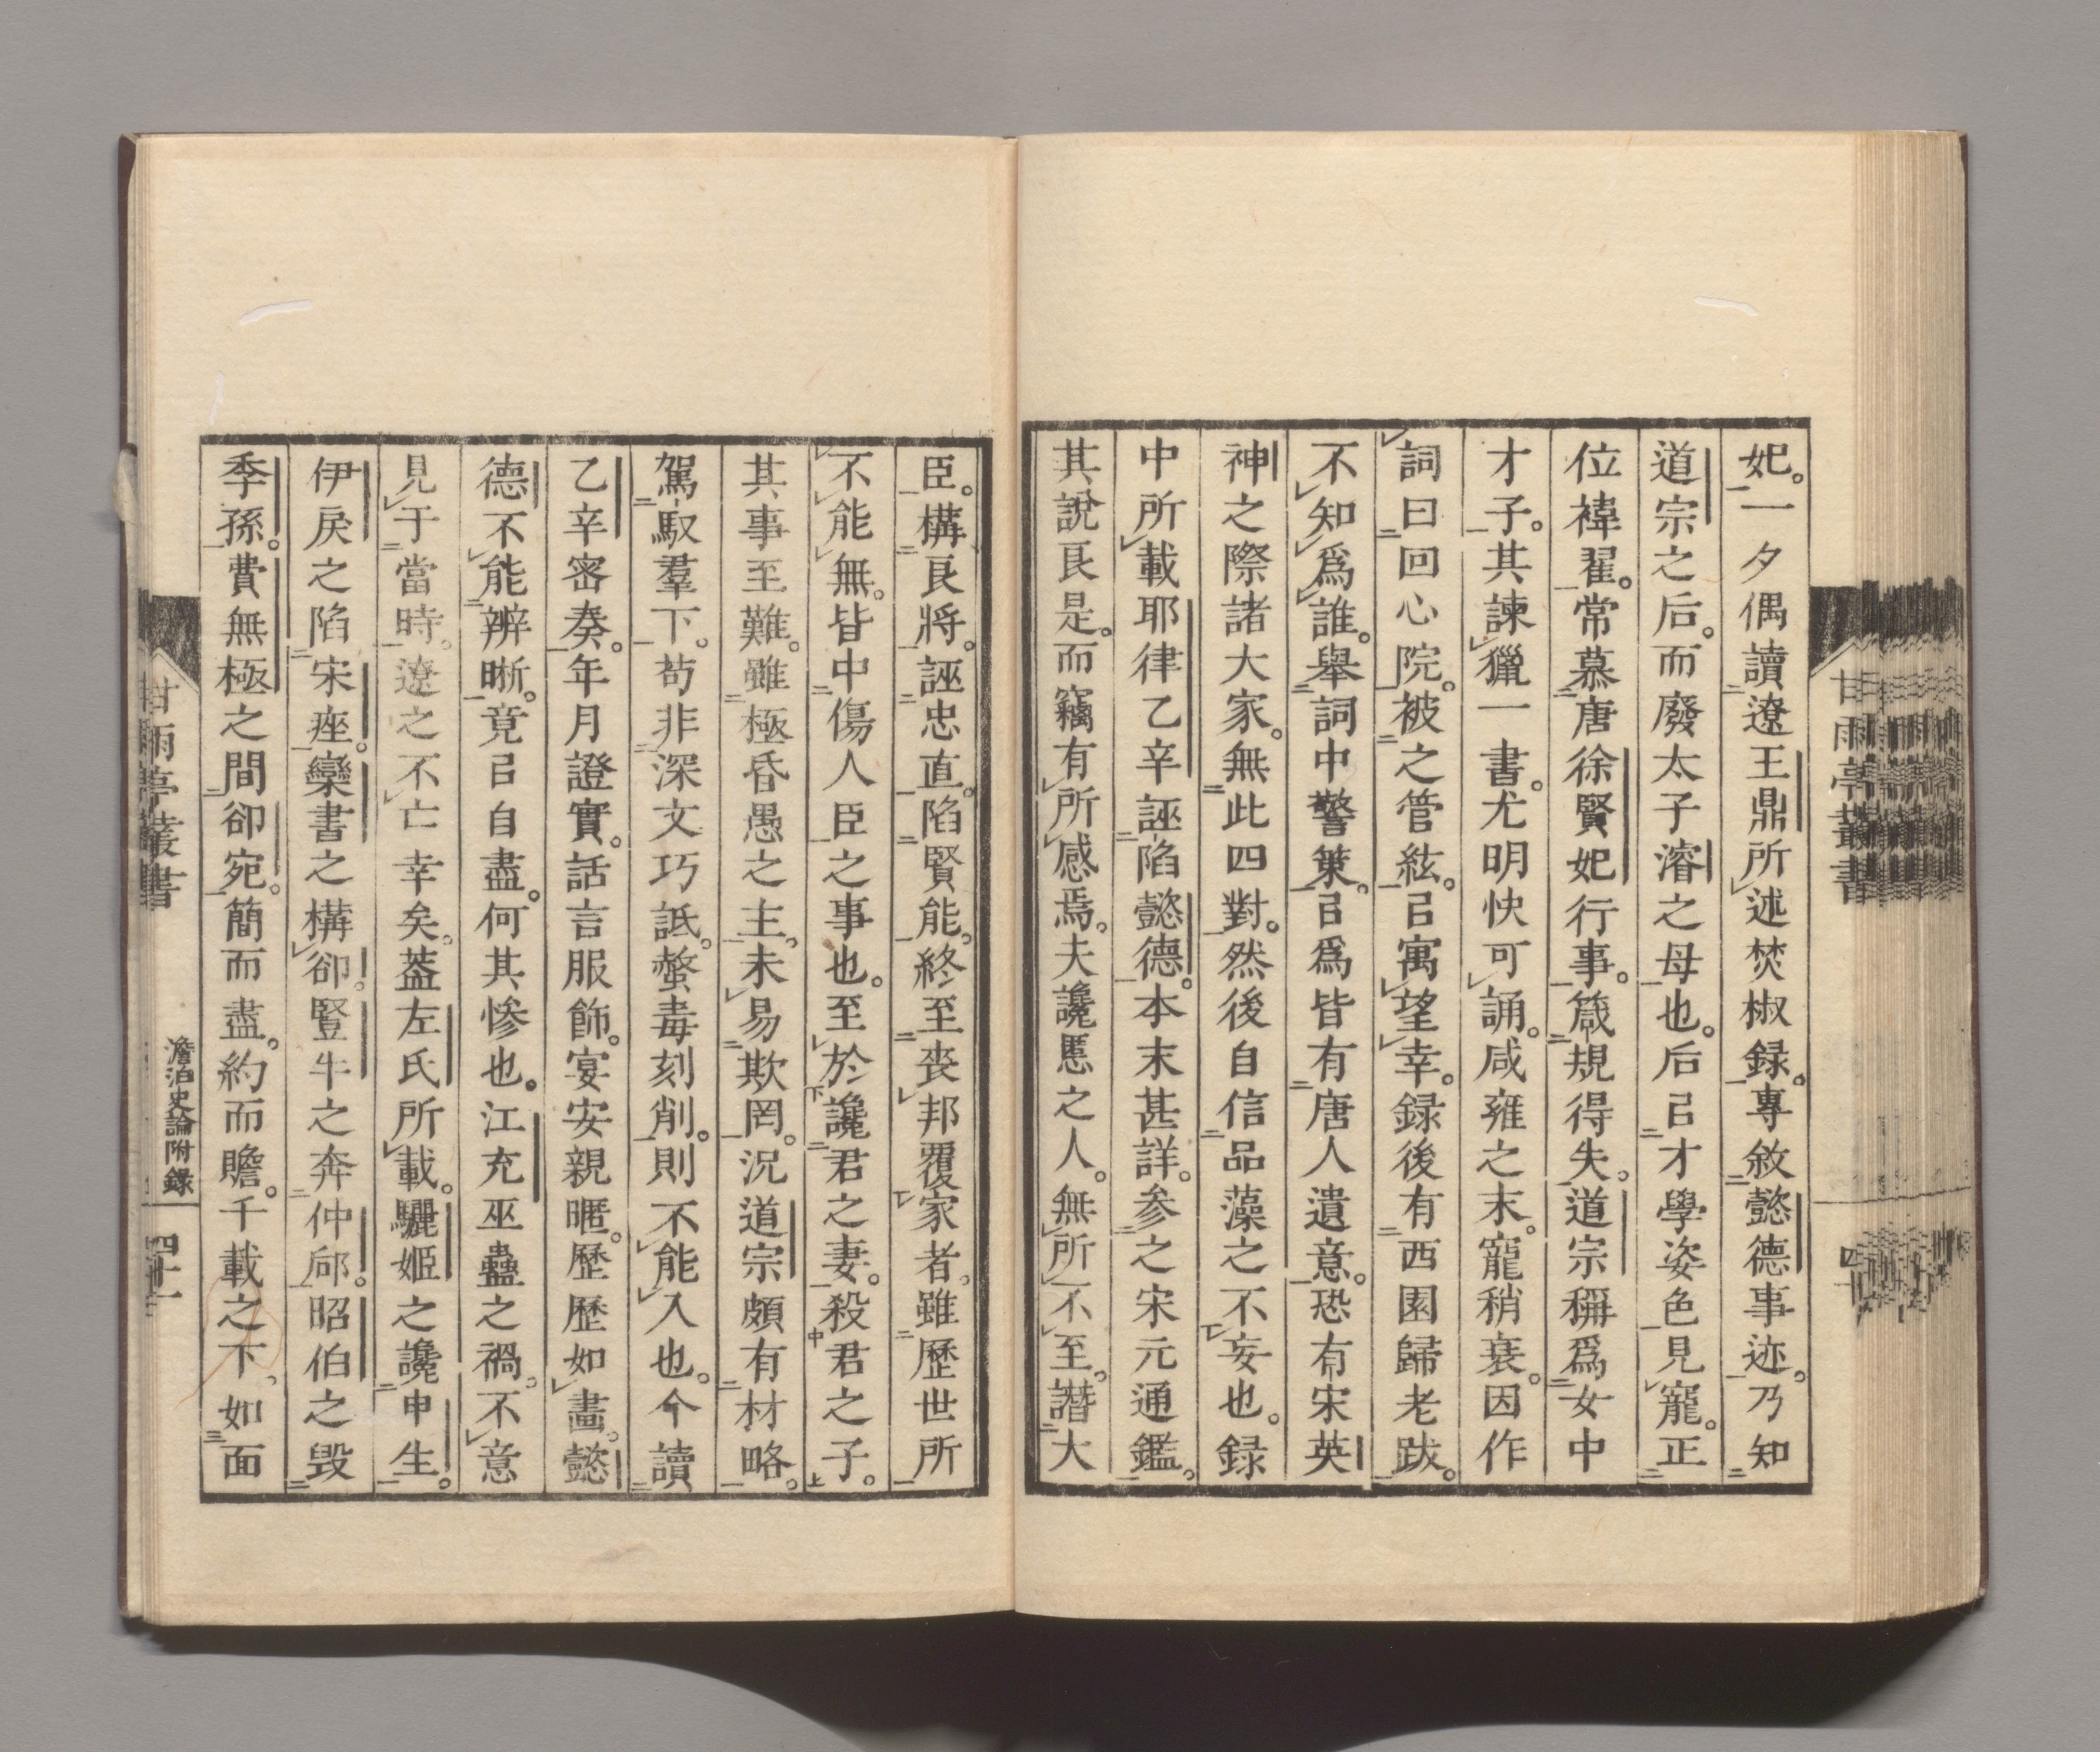 妃。一夕偶讀遼王鼎所述焚椒録。專敘懿德事迹。乃知
道宗之后。而廢太子濬之母也。后㠯才學姿色見寵。正
位褘翟。常慕唐徐賢妃行事。箴規得失。道宗稱爲女中
才子。其諫獵一書。尤明快可誦。咸雍之末。寵稍衰。因作
詞曰回心院。被之管絃。㠯寓望幸。録後有西園歸老跋。
不知爲誰。舉詞中警策。㠯爲皆有唐人遺意。恐有宋英
神之際諸大家。無此四對。然後自信品藻之不妄也。録
中所載耶律乙辛誣陷懿德。本末甚詳。参之宋元通鑑。
其說良是。而竊有所感焉。夫讒慝之人。無所不至。譖大
臣。構良將。誣忠直。陷賢能。終至喪邦覆家者。雖歷世所
不能無。皆中傷人臣之事也。至於讒君之妻。殺君之子。
其事至難。雖極昏愚之主。未易欺罔。況道宗頗有材略。
駕馭羣下。苟非深文巧詆。螫毒刻削。則不能入也。今讀
乙辛密奏。年月證實。話言服飾。宴安親暱。歷歷如畵。懿
德不能辨晰。竟㠯自盡。何其慘也。江充巫蠱之禍。不意
見于當時。遼之不亡幸矣。葢左氏所載。驪姬之讒申生。
伊戾之陷宋痤。欒書之構郤。豎牛之奔仲。郈昭伯之毀
季孫。費無極之間郤宛。簡而盡。約而贍。千載之下。如面
甘雨亭叢書
澹泊史論附錄
四十一
甘雨亭叢書